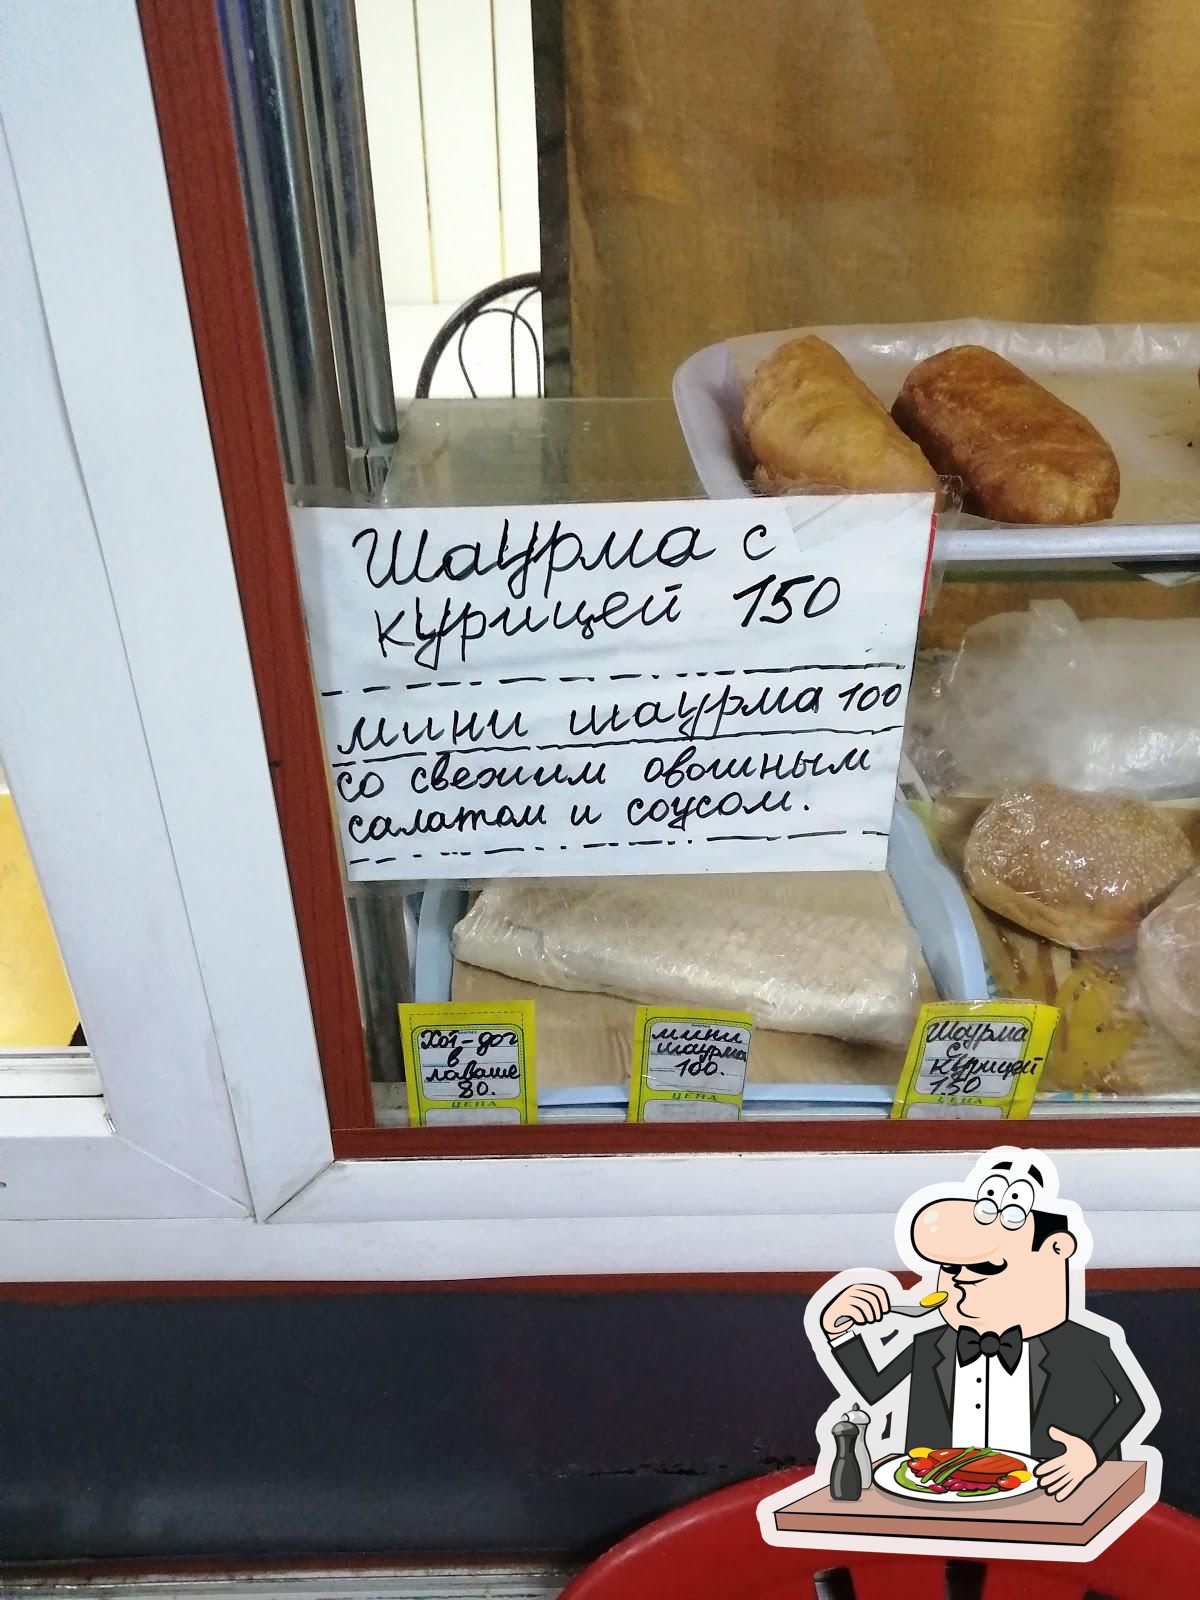 Шаурма с
курицей 150
мини шаурма 100
со свежим овошным
салатом и соусом.
Хот-дог
в
лаваше
80.
ЦЕНА
мини
шаурма
100.
ЦЕНА
Шаурма
с
курицей
150
ЦЕНА